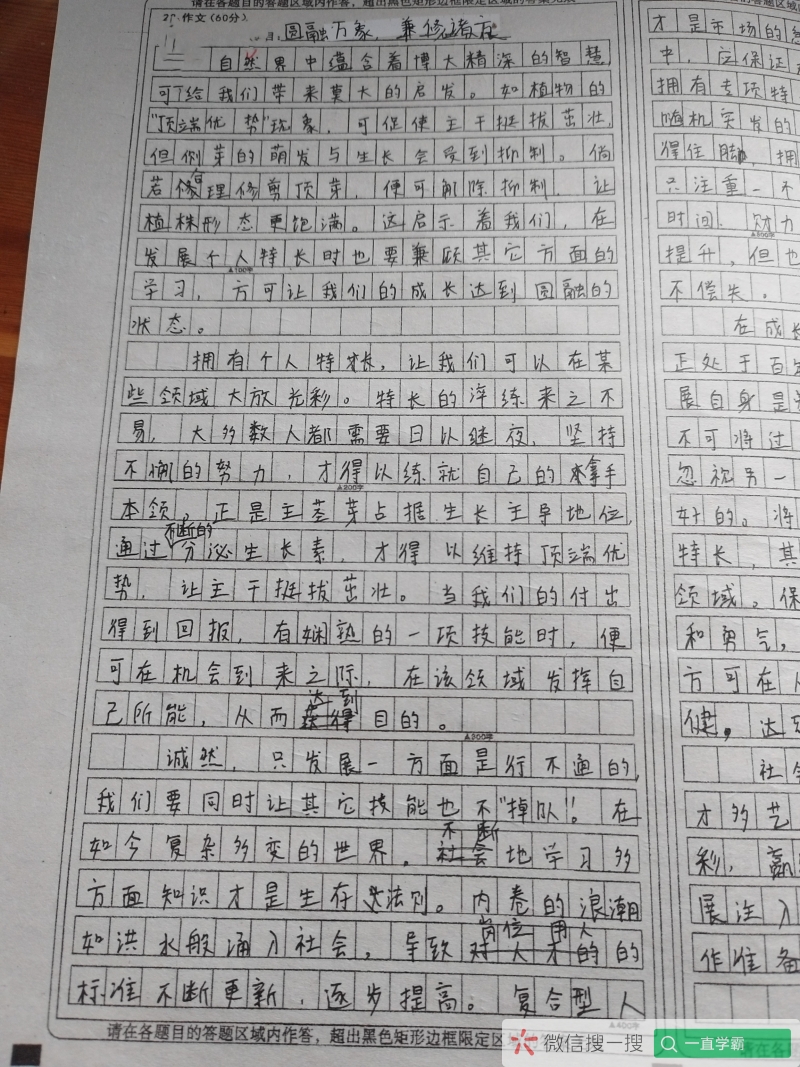 请在各题目的答题区域内作答，超出黑色矩形边框限定区域的答案无效
作文(60分)
目：圆融万象，兼修诸
自然界中蕴含着博大精深的智慧，
可给我们带来莫大的启发。如植物的
“顶端优势”现象，可促使主干挺拔茁壮，
但侧芽的萌发与生长会受到抑制。倘
若修理修剪顶芽，便可解除抑制，让
植株形态更饱满。这启示着我们，在
发展个人特长时也要兼顾其它方面的
▲100字
学习，方可让我们的成长达到圆融的
状态。
拥有个人特长，让我们可以在某
些领域大放光彩。特长的淬练来之不
易，大多数人都需要日以继夜，坚持
不懈的努力，才得以练就自己的拿手
▲200字
本领。正是主茎芽占据生长主导地位，
通过不断的分泌生长素，才得以维持顶端优
势，让主干挺拔茁壮。当我们的付出
得到回报，有娴熟的一项技能时，便
可在机会到来之际，在该领域发挥自
己所能，从而达到目的。
▲300字
诚然，只发展一方面是行不通的，
我们要同时让其它技能也不“掉队”。在
如今复杂多变的世界，不断地学习多
方面知识才是生存法则。内卷的浪潮
如洪水般涌入社会，导致岗位用人的
标准不断更新，逐步提高。复合型人
▲400字
请在各题目的答题区域内作答，超出黑色矩形边框限定区
才是市场的
中，应保证
拥有专项特
随机突发的
得住脚，拥
只注重一不
时间、财力
▲500字
提升，但也
不偿失。
在成长
正处于百
展自身是
不可将过
忽视另一
好的。将
特长，其
领域。保
和勇气，
方可在人
健，达
社会
才多艺
彩，赢
展注入
作准备
微信搜一搜
一直学霸